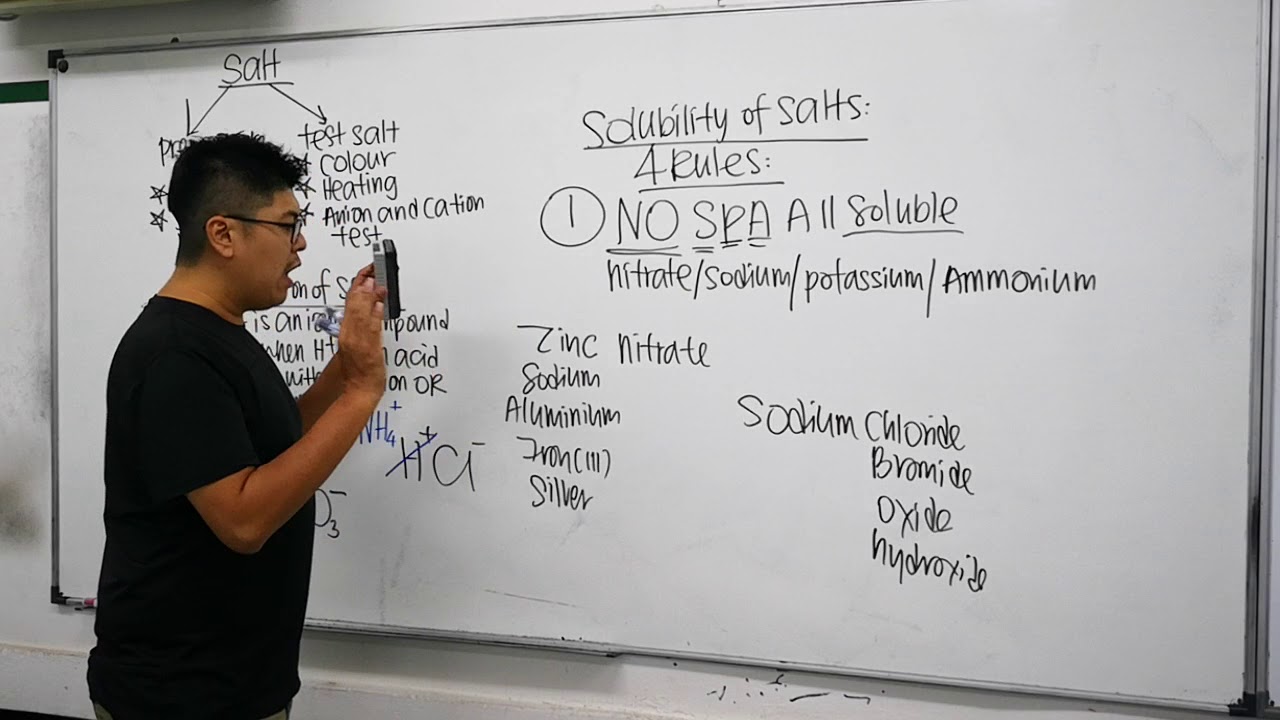 Salt
test salt
Colour
Heating
Anion and Cation
test
is an
when H+ acid
OR
NH4+
H+Cl-
O3-
Solubility of Salts:
4 Rules:
1 NO SPA All Soluble
nitrate/sodium/potassium/Ammonium
Zinc nitrate
Sodium
Aluminium
Iron(III)
Silver
Sodium Chloride
Bromide
Oxide
hydroxide